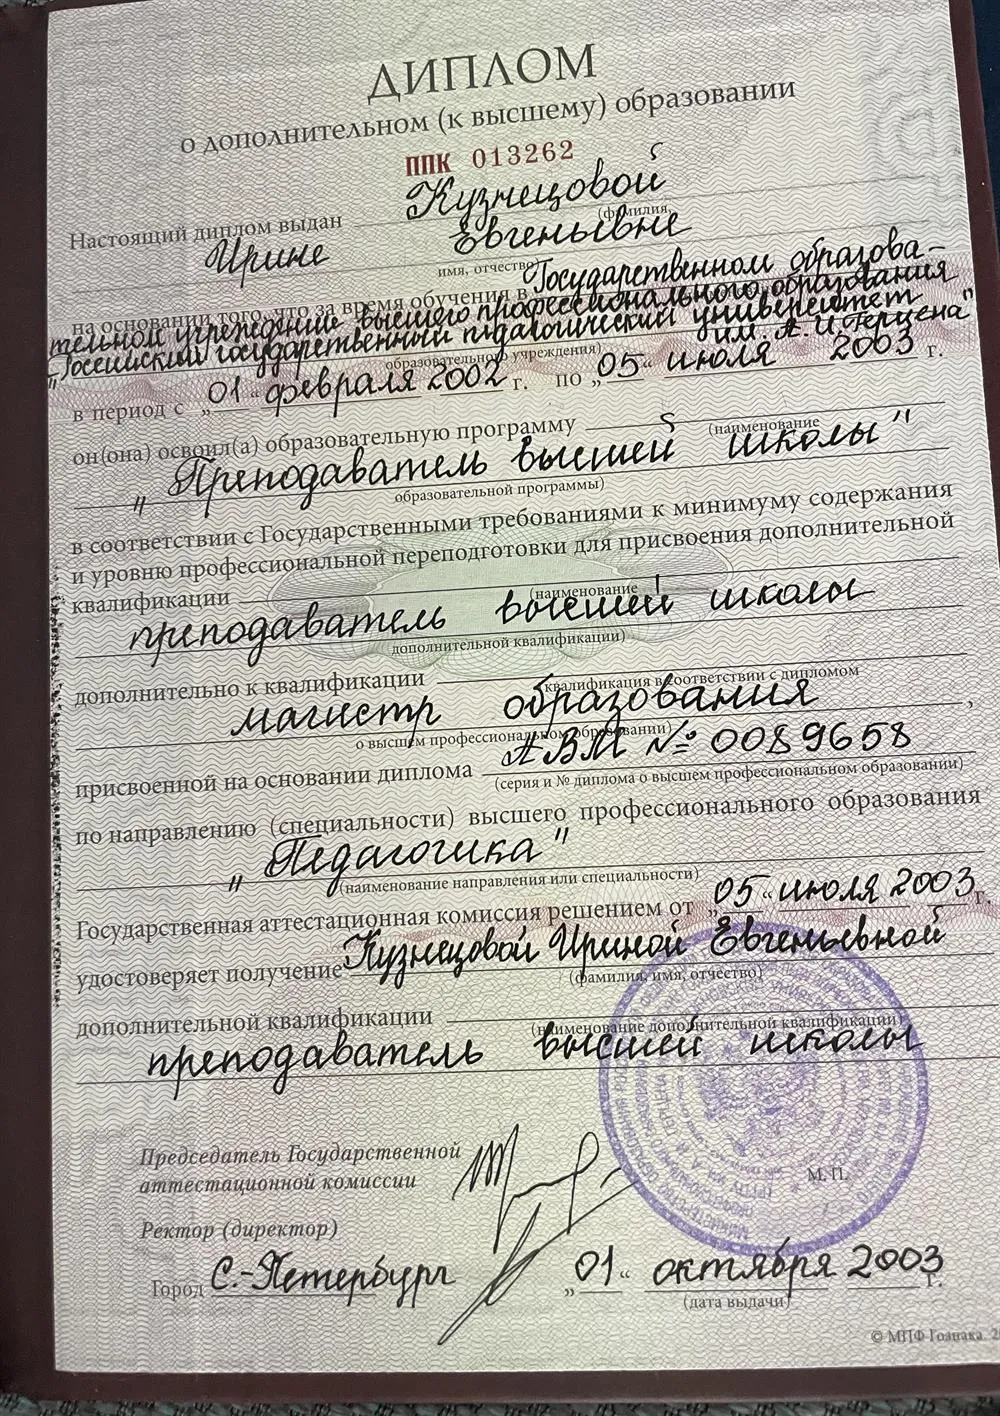 ДИПЛОМ
о дополнительном (к высшему) образовании
ППК 013262
Настоящий диплом выдан Кузнецовой
(фамилия,
Ирине Евгеньевне
имя, отчество)
на основании того, что за время обучения в Государственном образова-
тельном учреждении высшего профессионального образования
"Российский государственный педагогический университет
им. А. И. Герцена"
образовательного учреждения)
в период с „01“ февраля 2002 г. по „05“ июля 2003 г.
он(она) освоил(а) образовательную программу
(наименование
„Преподаватель высшей школы"
образовательной программы)
в соответствии с Государственными требованиями к минимуму содержания
и уровню профессиональной переподготовки для присвоения дополнительной
квалификации
(наименование
преподаватель высшей школы
дополнительной квалификации)
дополнительно к квалификации
квалификация в соответствии с дипломом
магистр образования,
о высшем профессиональном образовании)
присвоенной на основании диплома АВМ № 0089658
(серия и № диплома о высшем профессиональном образовании)
по направлению (специальности) высшего профессионального образования
„Педагогика"
(наименование направления или специальности)
Государственная аттестационная комиссия решением от „05“ июля 2003 г.
удостоверяет получение Кузнецовой Ириной Евгеньевной
(фамилия, имя, отчество)
дополнительной квалификации
(наименование дополнительной квалификации)
преподаватель высшей школы
Председатель Государственной
аттестационной комиссии
М. П.
Ректор (директор)
Город С.-Петербург „01“ октября 2003 г.
(дата выдачи)
© МПФ Гознака.